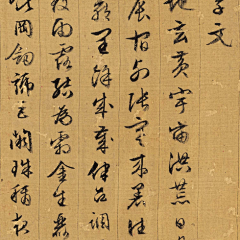 字文
地玄黃宇宙洪荒日月
辰宿列張寒來暑往
藏閏餘成歲律呂調
致雨露結為霜金生麗
岡劍號巨闕珠稱夜